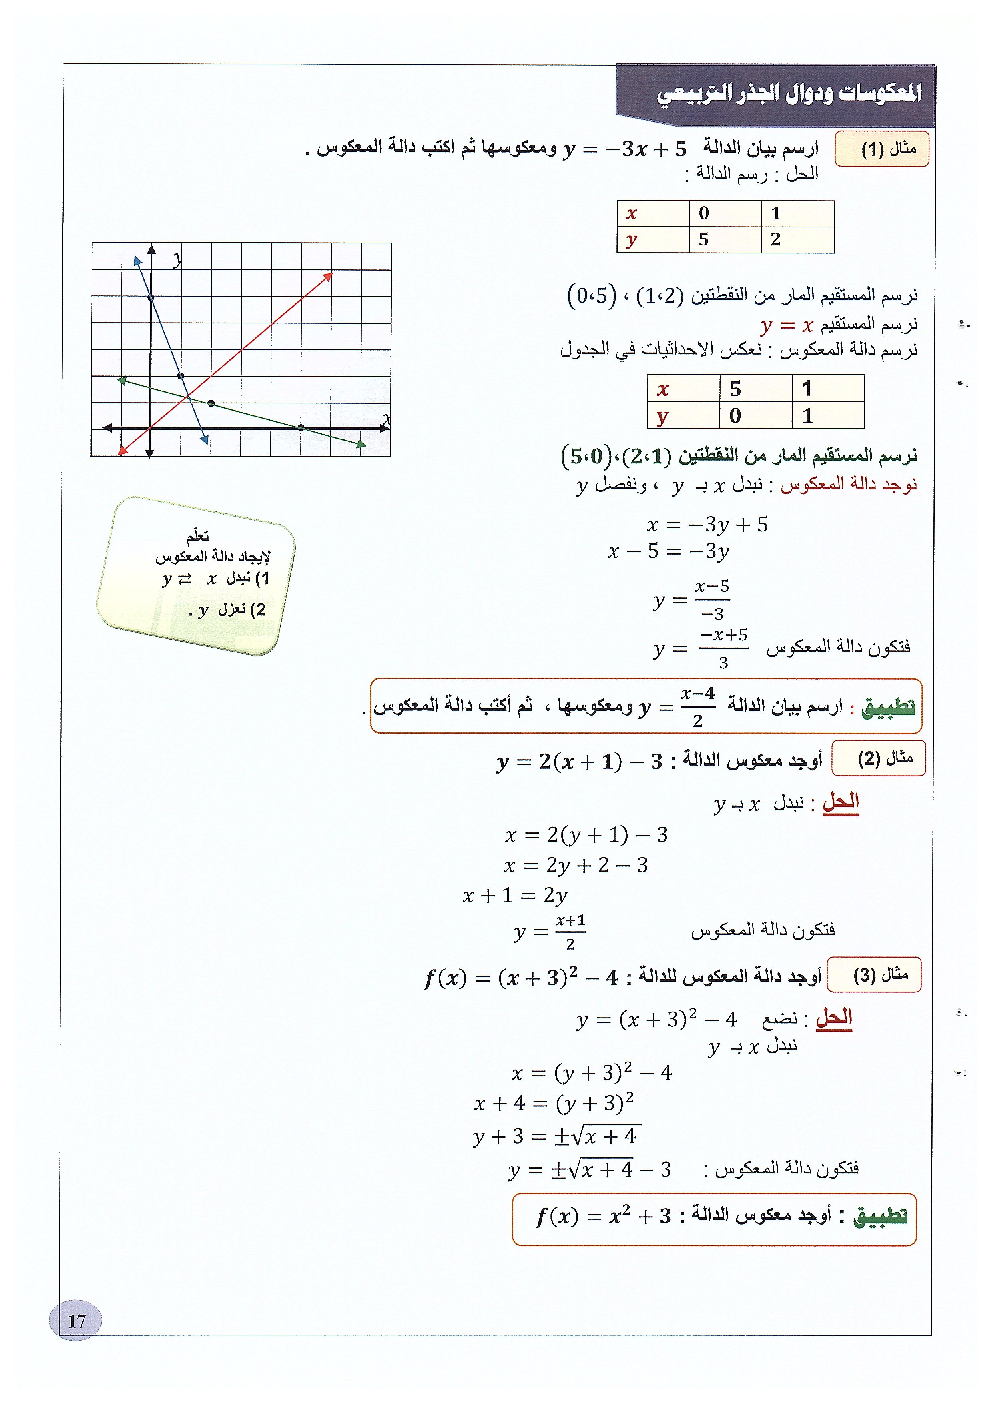 المعكوسات ودوال الجذر التربيعي
مثال (1) ارسم بيان الدالة y = −3x + 5 ومعكوسها ثم اكتب دالة المعكوس .
الحل : رسم الدالة :
x 0 1
y 5 2
y
x
نرسم المستقيم المار من النقطتين (1،2) ، (0،5)
نرسم المستقيم y = x
نرسم دالة المعكوس : نعكس الاحداثيات في الجدول
x 5 1
y 0 1
نرسم المستقيم المار من النقطتين (2،1)،(5،0)
نوجد دالة المعكوس : نبدل x بـ y ، ونفصل y
x = −3y + 5
x − 5 = −3y
y = (x−5)/(−3)
فتكون دالة المعكوس y = (−x+5)/3
تعلّم
لإيجاد دالة المعكوس
1) نبدل x ⇄ y
2) نعزل y .
تطبيق : ارسم بيان الدالة y = (x−4)/2 ومعكوسها ، ثم أكتب دالة المعكوس .
مثال (2) أوجد معكوس الدالة : y = 2(x + 1) − 3
الحل : نبدل x بـ y
x = 2(y + 1) − 3
x = 2y + 2 − 3
x + 1 = 2y
فتكون دالة المعكوس y = (x+1)/2
مثال (3) أوجد دالة المعكوس للدالة : f(x) = (x + 3)² − 4
الحل : نضع y = (x + 3)² − 4
نبدل x بـ y
x = (y + 3)² − 4
x + 4 = (y + 3)²
y + 3 = ±√(x + 4)
فتكون دالة المعكوس : y = ±√(x + 4) − 3
تطبيق : أوجد معكوس الدالة : f(x) = x² + 3
17